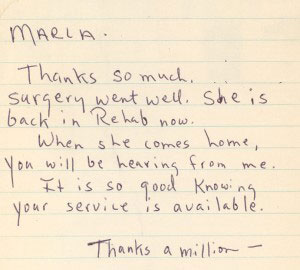 MARLA.
Thanks so much.
surgery went well. She is
back in Rehab now.
When she comes home,
you will be hearing from me.
It is so good knowing
your service is available.
Thanks a million —